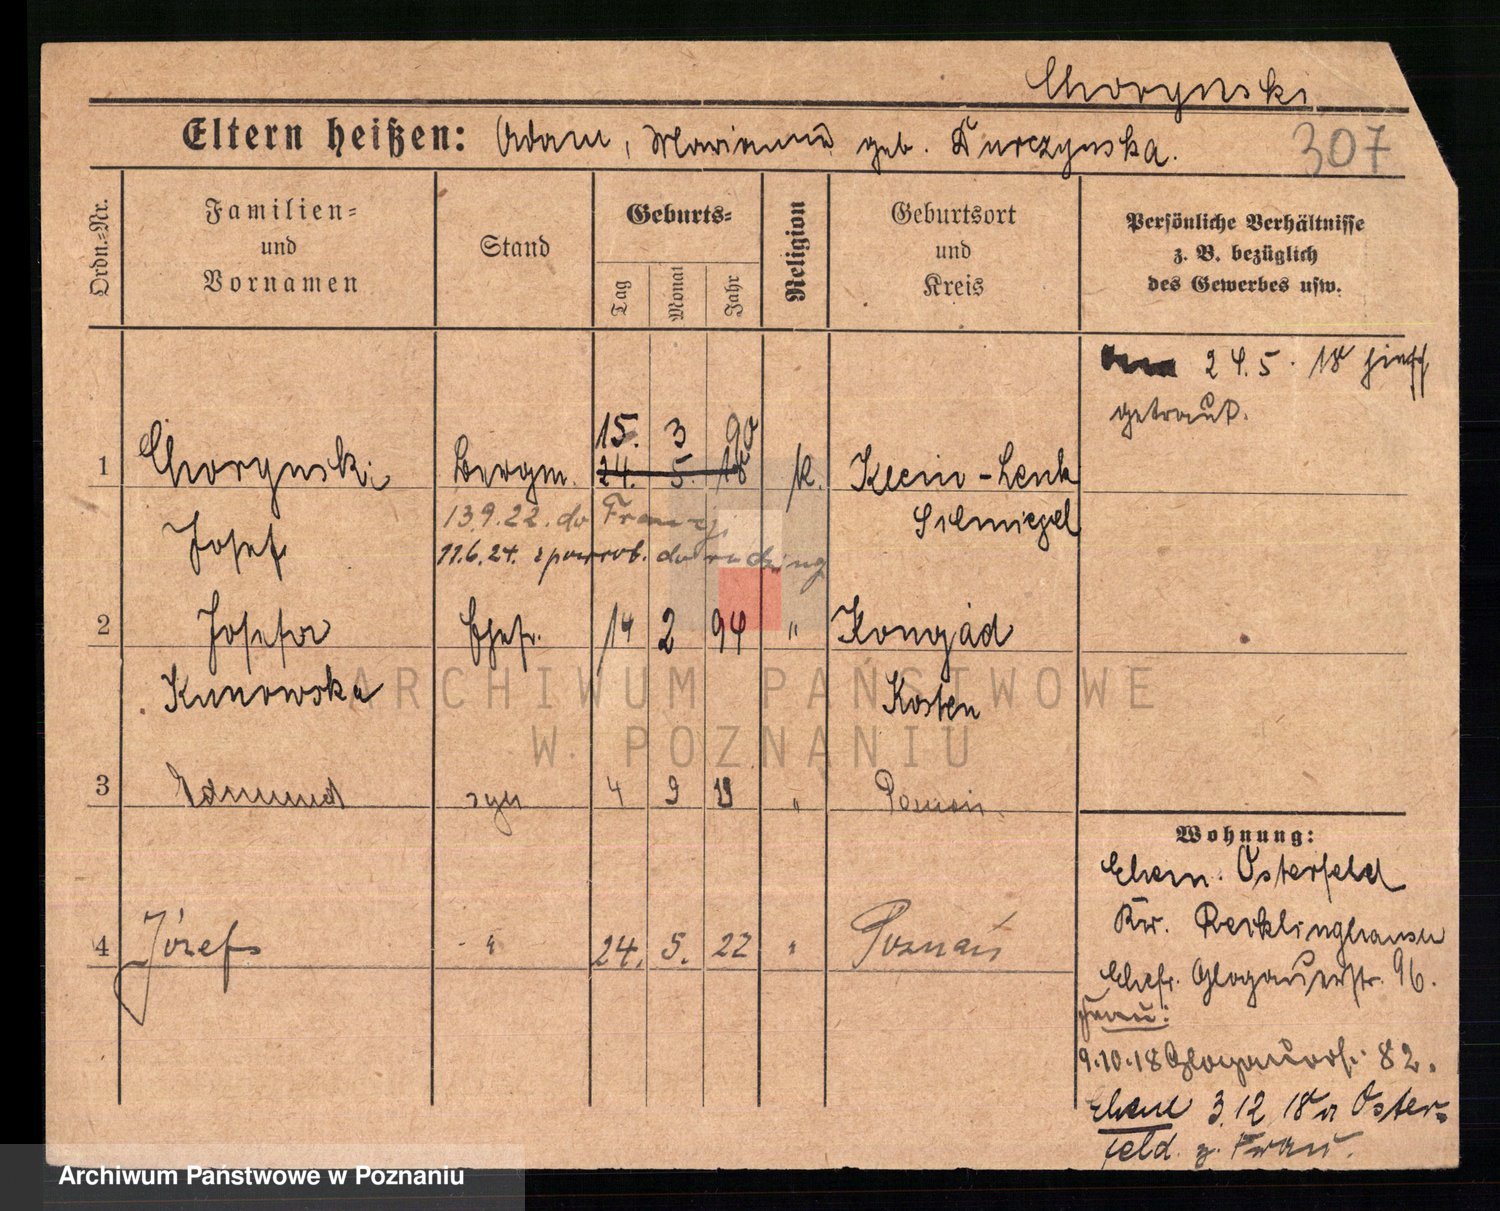 Chorynski
307
Eltern heißen: Adam, Marianna geb. Kurczynska.
Ordn.=Nr.
Familien=
und
Vornamen
Stand
Geburts=
Tag
Monat
Jahr
Religion
Geburtsort
und
Kreis
Persönliche Verhältnisse
z. B. bezüglich
des Gewerbes usw.
24. 5. 18 hier
getraut.
15. 3 90
1 Chorynski Bergm. 24. 5. 18 k. Klein-Lenk
13.9.22. do Francji
Josef Schmiegel
11.6.24. z powrob. do rodziny
2 Josefa Ehefr. 14 2 94 " Kongad
Kunowska Kosten
3 Edmund syn 4 9 19 " Poznań
Wohnung:
Ehem. Osterfeld
Kr. Recklinghausen
4 Józef " 24. 5. 22 " Poznań
Ehefr. Glogauerstr. 96.
Frau:
9.10.18 Glogauerstr. 82.
Ehem 3.12.18 a Oster=
feld. z. Frau.
ARCHIWUM PAŃSTWOWE
W POZNANIU
Archiwum Państwowe w Poznaniu